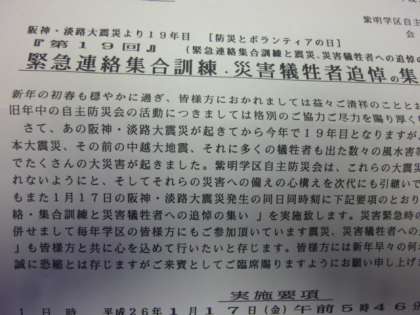 紫明学区自主
阪神・淡路大震災より19年目 [防災とボランティアの日] 会
『第19回』 (緊急連絡集合訓練と震災、災害犠牲者への追悼の
緊急連絡集合訓練・災害犠牲者追悼の集
新年の初春も穏やかに過ぎ、皆様方におかれましては益々ご清祥のことと
旧年中の自主防災会の活動につきましては格別のご協力ご尽力を賜り厚く
さて、あの阪神・淡路大震災が起きてから今年で19年目となりますが
本大震災、その前の中越大地震、それに多くの犠牲も出た数々の風水害等
でたくさんの大災害が起きました。紫明学区自主防災会は、これらの大震
れないようにと、そしてそれらの災害への備えの心構えを次代にも引継いで
もまた1月17日の阪神・淡路大震災発生の同日同時刻に下記要項のとおり
絡・集合訓練と災害犠牲者への追悼の集い 」を実施致します。災害緊急時の
併せまして毎年学区の皆様方にもご参加頂いています震災、災害犠牲者への
」も皆様方と共に心を込めて行いたいと存じます。皆様方には新年早々の何
誠に恐縮とは存じますがご来賓としてご臨席賜りますようにお願い申し上げ
実施要項
1 日 時 平成26年1月17日(金)午前5時46分